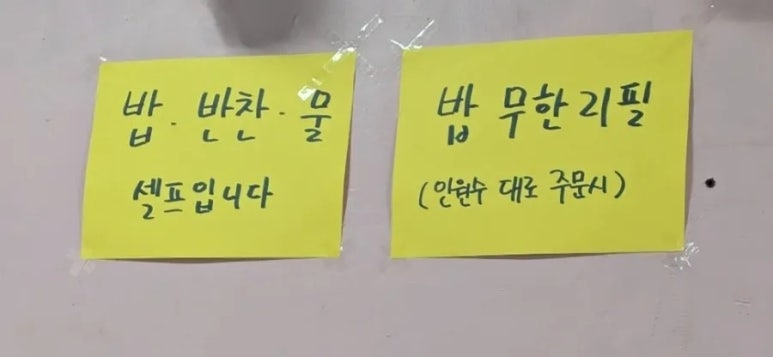 밥. 반찬. 물
셀프입니다
밥 무한리필
(인원수 대로 주문시)